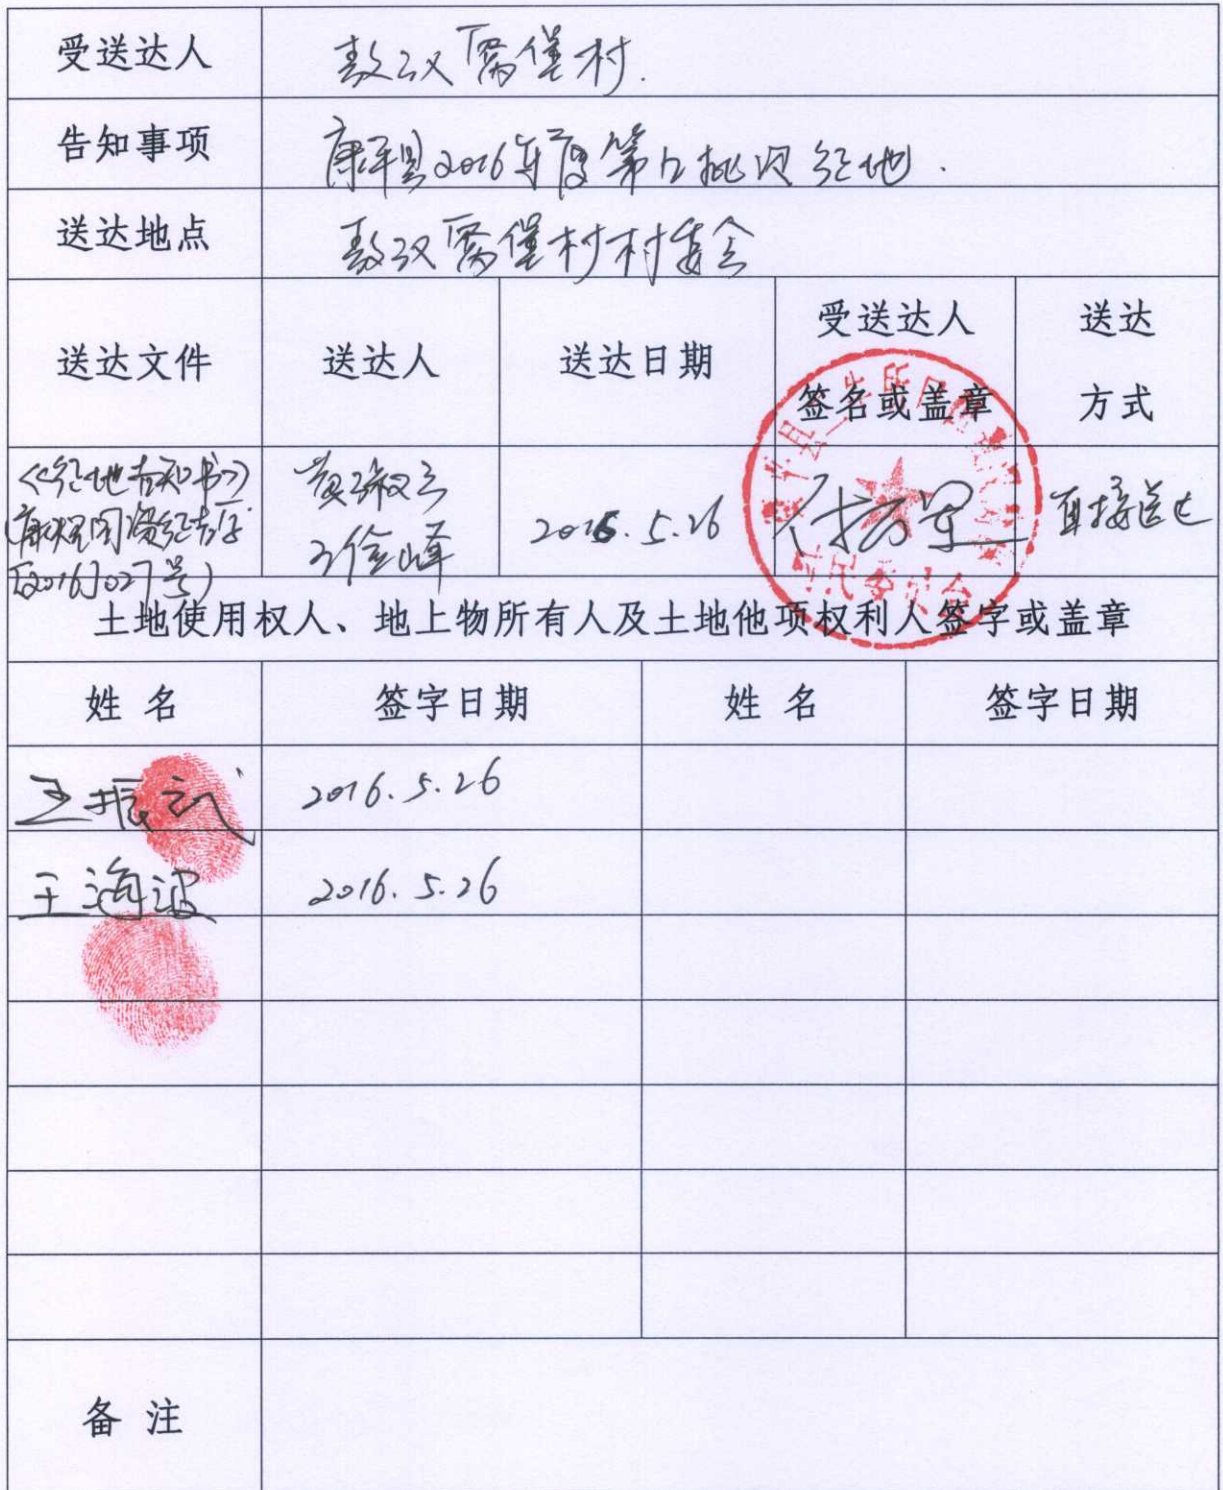 受送达人 敖汉窝堡村.
告知事项 康平县2016年度第 批次征地.
送达地点 敖汉窝堡村村委会
送达文件 送达人 送达日期 受送达人 签名或盖章 送达方式
《征地告知书》
[2016]027号)
2016.5.26
直接送达
村民委员会
土地使用权人、地上物所有人及土地他项权利人签字或盖章
姓名 签字日期 姓名 签字日期
王振武 2016.5.26
王海波 2016.5.26
备注